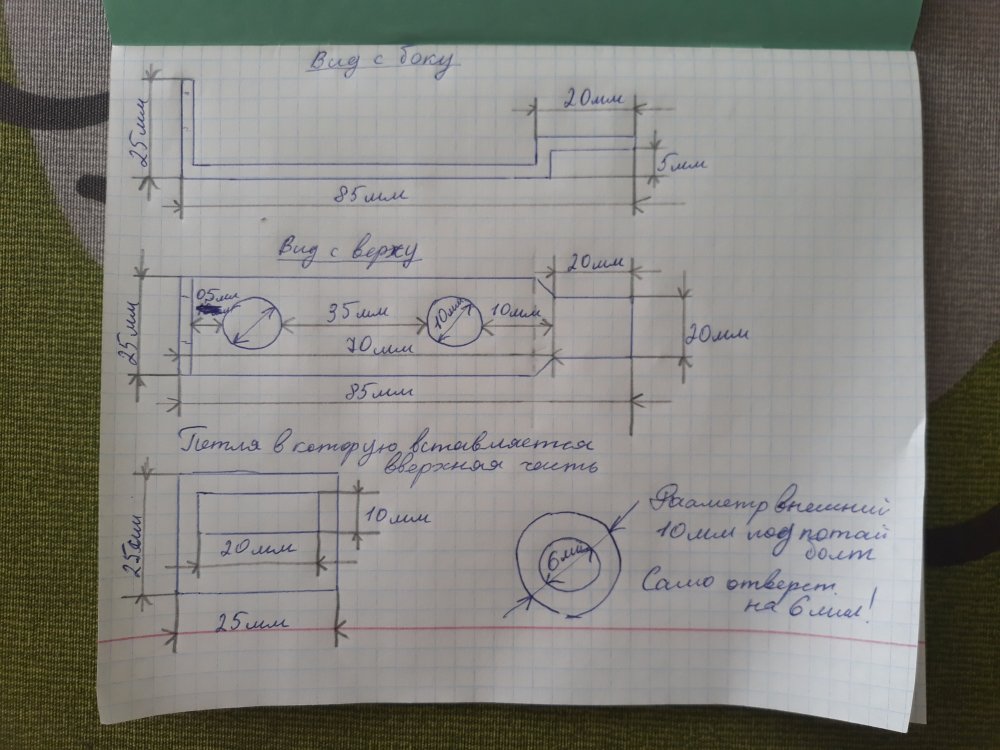 Вид с боку
20мм
25мм
5мм
85мм
Вид с верху
20мм
05мм
35мм
10мм
10мм
25мм
70мм
20мм
85мм
Петля в которую вставляется
вверхная часть
25мм
10мм
20мм
25мм
6мм
Диаметр внешний
10мм под потай
болт
Само отверст.
на 6мм!